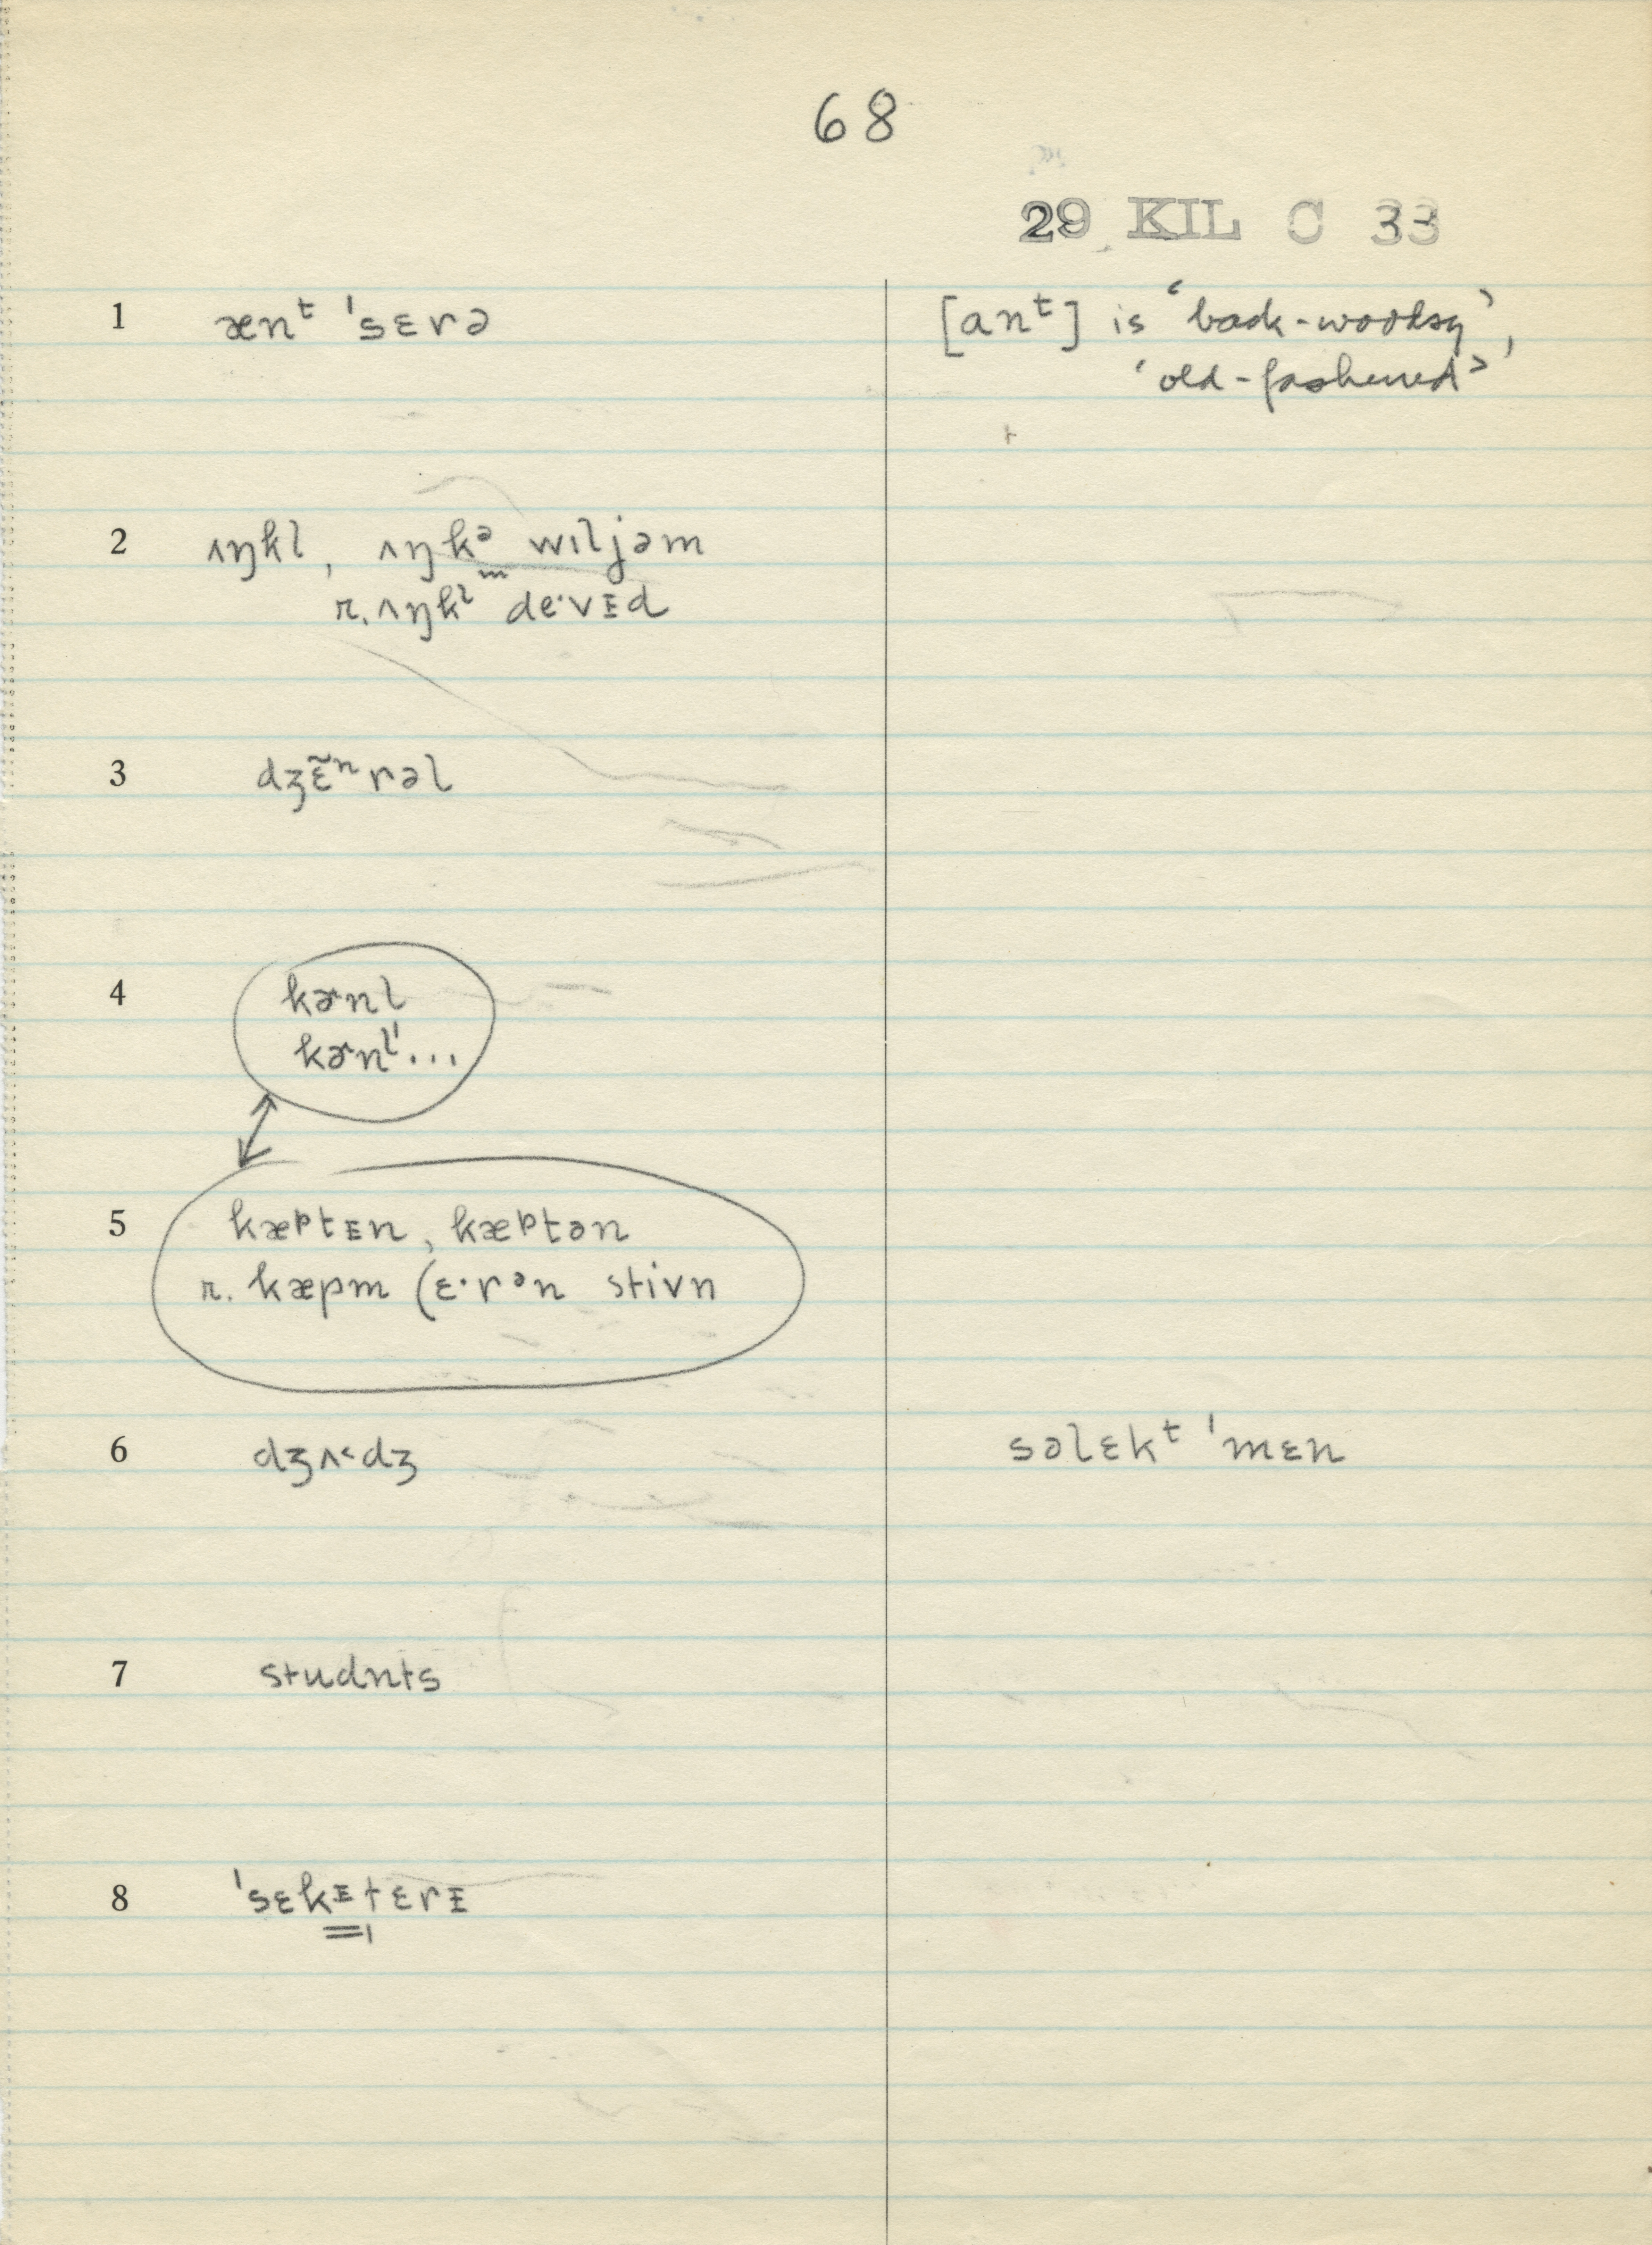 68
29 KIL C 33
1 ænᵗ ˈsɛrə
[anᵗ] is ‘back-woodsy’,
‘old-fashened’
2 ʌŋkl, ʌŋkᵊ wɪljəm
r. ʌŋkˡ de·vᴇd
3 dʒɛ̃ⁿrəl
4 kɚnl
kɚnˡˈ...
5 kæᵖtᴇn, kæᵖtən
r. kæpm (ɛ·rᵊn stivn
6 dʒʌ˂dʒ
səlɛkᵗ ˈmɛn
7 studnts
8 ˈsɛkᴇtɛrᴇ